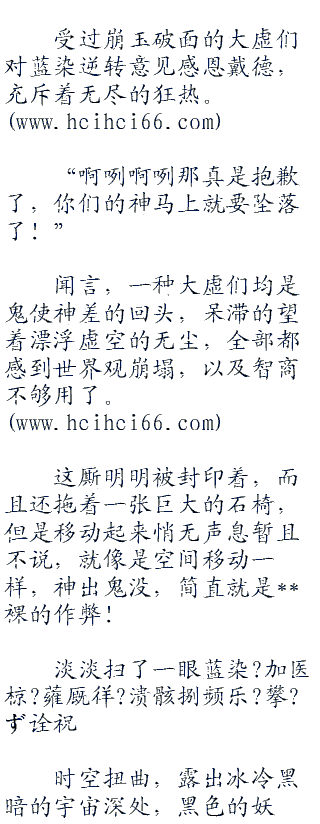 受过崩玉破面的大虚们
对蓝染逆转意见感恩戴德，
充斥着无尽的狂热。
(www.hcihci66.com)
“啊咧啊咧那真是抱歉
了，你们的神马上就要坠落
了！”
闻言，一种大虚们均是
鬼使神差的回头，呆滞的望
着漂浮虚空的无尘，全部都
感到世界观崩塌，以及智商
不够用了。
(www.hcihci66.com)
这厮明明被封印着，而
且还拖着一张巨大的石椅，
但是移动起来悄无声息暂且
不说，就像是空间移动一
样，神出鬼没，简直就是**
裸的作弊！
淡淡扫了一眼蓝染?加医
椋?蕹厩徉?溃骸捌频乐?攀?
ず诠祝
时空扭曲，露出冰冷黑
暗的宇宙深处，黑色的妖